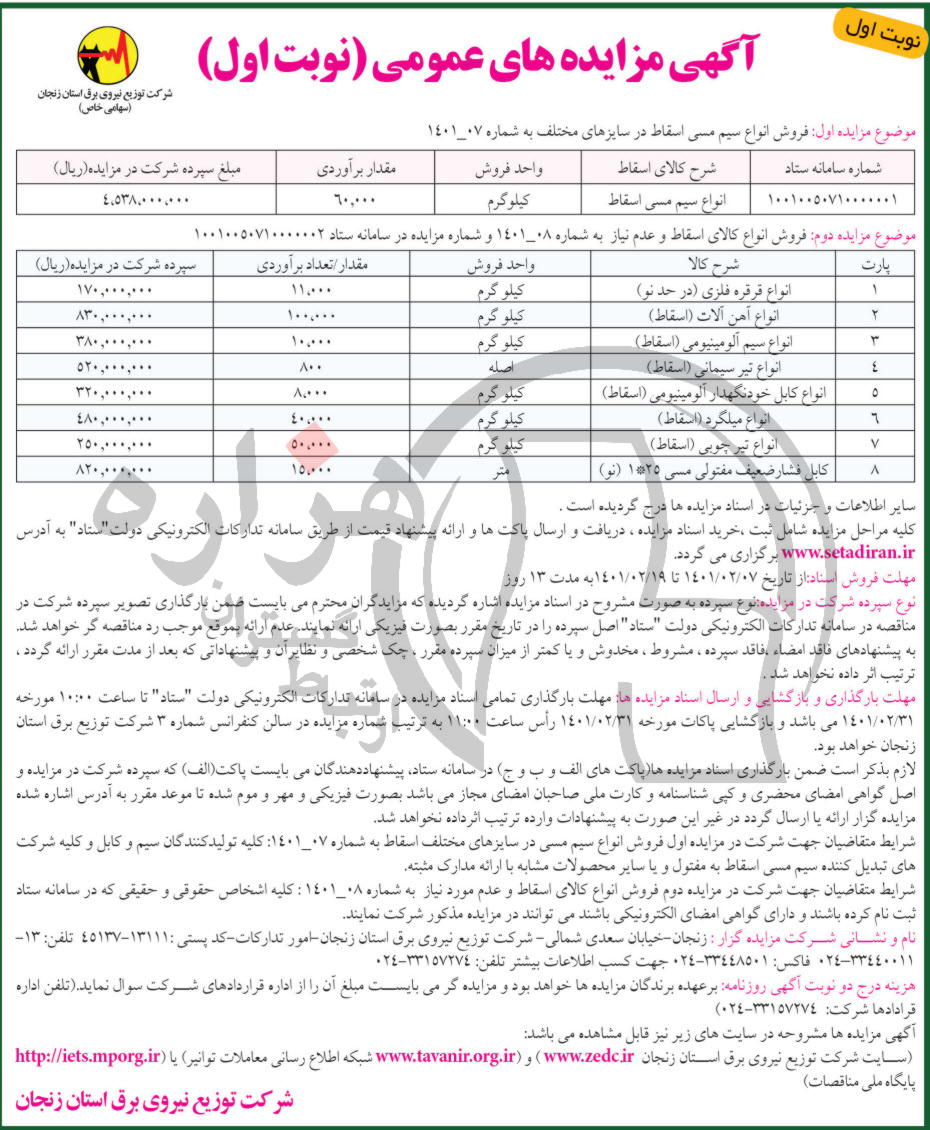 نوبت اول
آگهی مزایده های عمومی (نوبت اول)
شرکت توزیع نیروی برق استان زنجان
(سهامی خاص)
موضوع مزایده اول: فروش انواع سیم مسی اسقاط در سایزهای مختلف به شماره ۰۷_۱٤۰۱
شماره سامانه ستاد شرح کالای اسقاط واحد فروش مقدار برآوردی مبلغ سپرده شرکت در مزایده(ریال)
۱۰۰۱۰۰۵۰۷۱۰۰۰۰۰۰۱ انواع سیم مسی اسقاط کیلوگرم ٦۰,۰۰۰ ٤,۵۳۸,۰۰۰,۰۰۰
موضوع مزایده دوم: فروش انواع کالای اسقاط و عدم نیاز به شماره ۰۸_۱٤۰۱ و شماره مزایده در سامانه ستاد ۱۰۰۱۰۰۵۰۷۱۰۰۰۰۰۰۲
پارت شرح کالا واحد فروش مقدار/تعداد برآوردی سپرده شرکت در مزایده(ریال)
۱ انواع قرقره فلزی (در حد نو) کیلو گرم ۱۱,۰۰۰ ۱۷۰,۰۰۰,۰۰۰
۲ انواع آهن آلات (اسقاط) کیلو گرم ۱۰۰,۰۰۰ ۸۳۰,۰۰۰,۰۰۰
۳ انواع سیم آلومینیومی (اسقاط) کیلو گرم ۱۰,۰۰۰ ۳۸۰,۰۰۰,۰۰۰
٤ انواع تیر سیمانی (اسقاط) اصله ۸۰۰ ۵۲۰,۰۰۰,۰۰۰
۵ انواع کابل خودنگهدار آلومینیومی (اسقاط) کیلو گرم ۸,۰۰۰ ۳۲۰,۰۰۰,۰۰۰
٦ انواع میلگرد (اسقاط) کیلو گرم ٤۰,۰۰۰ ٤۸۰,۰۰۰,۰۰۰
۷ انواع تیر چوبی (اسقاط) کیلو گرم ۵۰,۰۰۰ ۲۵۰,۰۰۰,۰۰۰
۸ کابل فشارضعیف مفتولی مسی ۲۵*۱ (نو) متر ۱۵,۰۰۰ ۸۲۰,۰۰۰,۰۰۰
سایر اطلاعات و جزئیات در اسناد مزایده ها درج گردیده است .
کلیه مراحل مزایده شامل ثبت ،خرید اسناد مزایده ، دریافت و ارسال پاکت ها و ارائه پیشنهاد قیمت از طریق سامانه تدارکات الکترونیکی دولت"ستاد" به آدرس
www.setadiran.ir برگزاری می گردد.
مهلت فروش اسناد:از تاریخ ۱٤۰۱/۰۲/۰۷ تا ۱٤۰۱/۰۲/۱۹به مدت ۱۳ روز
نوع سپرده شرکت در مزایده:نوع سپرده به صورت مشروح در اسناد مزایده اشاره گردیده که مزایدگران محترم می بایست ضمن بارگذاری تصویر سپرده شرکت در
مناقصه در سامانه تدارکات الکترونیکی دولت "ستاد" اصل سپرده را در تاریخ مقرر بصورت فیزیکی ارائه نمایند.عدم ارائه بموقع موجب رد مناقصه گر خواهد شد.
به پیشنهادهای فاقد امضاء ،فاقد سپرده ، مشروط ، مخدوش و یا کمتر از میزان سپرده مقرر ، چک شخصی و نظایر آن و پیشنهاداتی که بعد از مدت مقرر ارائه گردد ،
ترتیب اثر داده نخواهد شد .
مهلت بارگذاری و بازگشایی و ارسال اسناد مزایده ها: مهلت بارگذاری تمامی اسناد مزایده در سامانه تدارکات الکترونیکی دولت "ستاد" تا ساعت ۱۰:۰۰ مورخه
۱٤۰۱/۰۲/۳۱ می باشد و بازگشایی پاکات مورخه ۱٤۰۱/۰۲/۳۱ رأس ساعت ۱۱:۰۰ به ترتیب شماره مزایده در سالن کنفرانس شماره ۳ شرکت توزیع برق استان
زنجان خواهد بود.
لازم بذکر است ضمن بارگذاری اسناد مزایده ها(پاکت های الف و ب و ج) در سامانه ستاد، پیشنهاددهندگان می بایست پاکت(الف) که سپرده شرکت در مزایده و
اصل گواهی امضای محضری و کپی شناسنامه و کارت ملی صاحبان امضای مجاز می باشد بصورت فیزیکی و مهر و موم شده تا موعد مقرر به آدرس اشاره شده
مزایده گزار ارائه یا ارسال گردد در غیر این صورت به پیشنهادات وارده ترتیب اثرداده نخواهد شد.
شرایط متقاضیان جهت شرکت در مزایده اول فروش انواع سیم مسی در سایزهای مختلف اسقاط به شماره ۰۷_۱٤۰۱: کلیه تولیدکنندگان سیم و کابل و کلیه شرکت
های تبدیل کننده سیم مسی اسقاط به مفتول و یا سایر محصولات مشابه با ارائه مدارک مثبته.
شرایط متقاضیان جهت شرکت در مزایده دوم فروش انواع کالای اسقاط و عدم مورد نیاز به شماره ۰۸_۱٤۰۱ : کلیه اشخاص حقوقی و حقیقی که در سامانه ستاد
ثبت نام کرده باشند و دارای گواهی امضای الکترونیکی باشند می توانند در مزایده مذکور شرکت نمایند.
نام و نشانی شرکت مزایده گزار : زنجان-خیابان سعدی شمالی- شرکت توزیع نیروی برق استان زنجان-امور تدارکات-کد پستی :۱۳۱۱۱-٤۵۱۳۷ تلفن: ۱۳-
۰۲٤-۳۳٤٤۰۰۱۱ فاکس: ۰۲٤-۳۳٤٤۸۵۰۱ جهت کسب اطلاعات بیشتر تلفن: ۰۲٤-۳۳۱۵۷۲۷٤
هزینه درج دو نوبت آگهی روزنامه: برعهده برندگان مزایده ها خواهد بود و مزایده گر می بایست مبلغ آن را از اداره قراردادهای شرکت سوال نماید.(تلفن اداره
قرادادها شرکت: ۰۲٤-۳۳۱۵۷۲۷٤)
آگهی مزایده ها مشروحه در سایت های زیر نیز قابل مشاهده می باشد:
(سایت شرکت توزیع نیروی برق استان زنجان www.zedc.ir ) و (www.tavanir.org.ir شبکه اطلاع رسانی معاملات توانیر) یا (http://iets.mporg.ir
پایگاه ملی مناقصات)
شرکت توزیع نیروی برق استان زنجان
هزاره